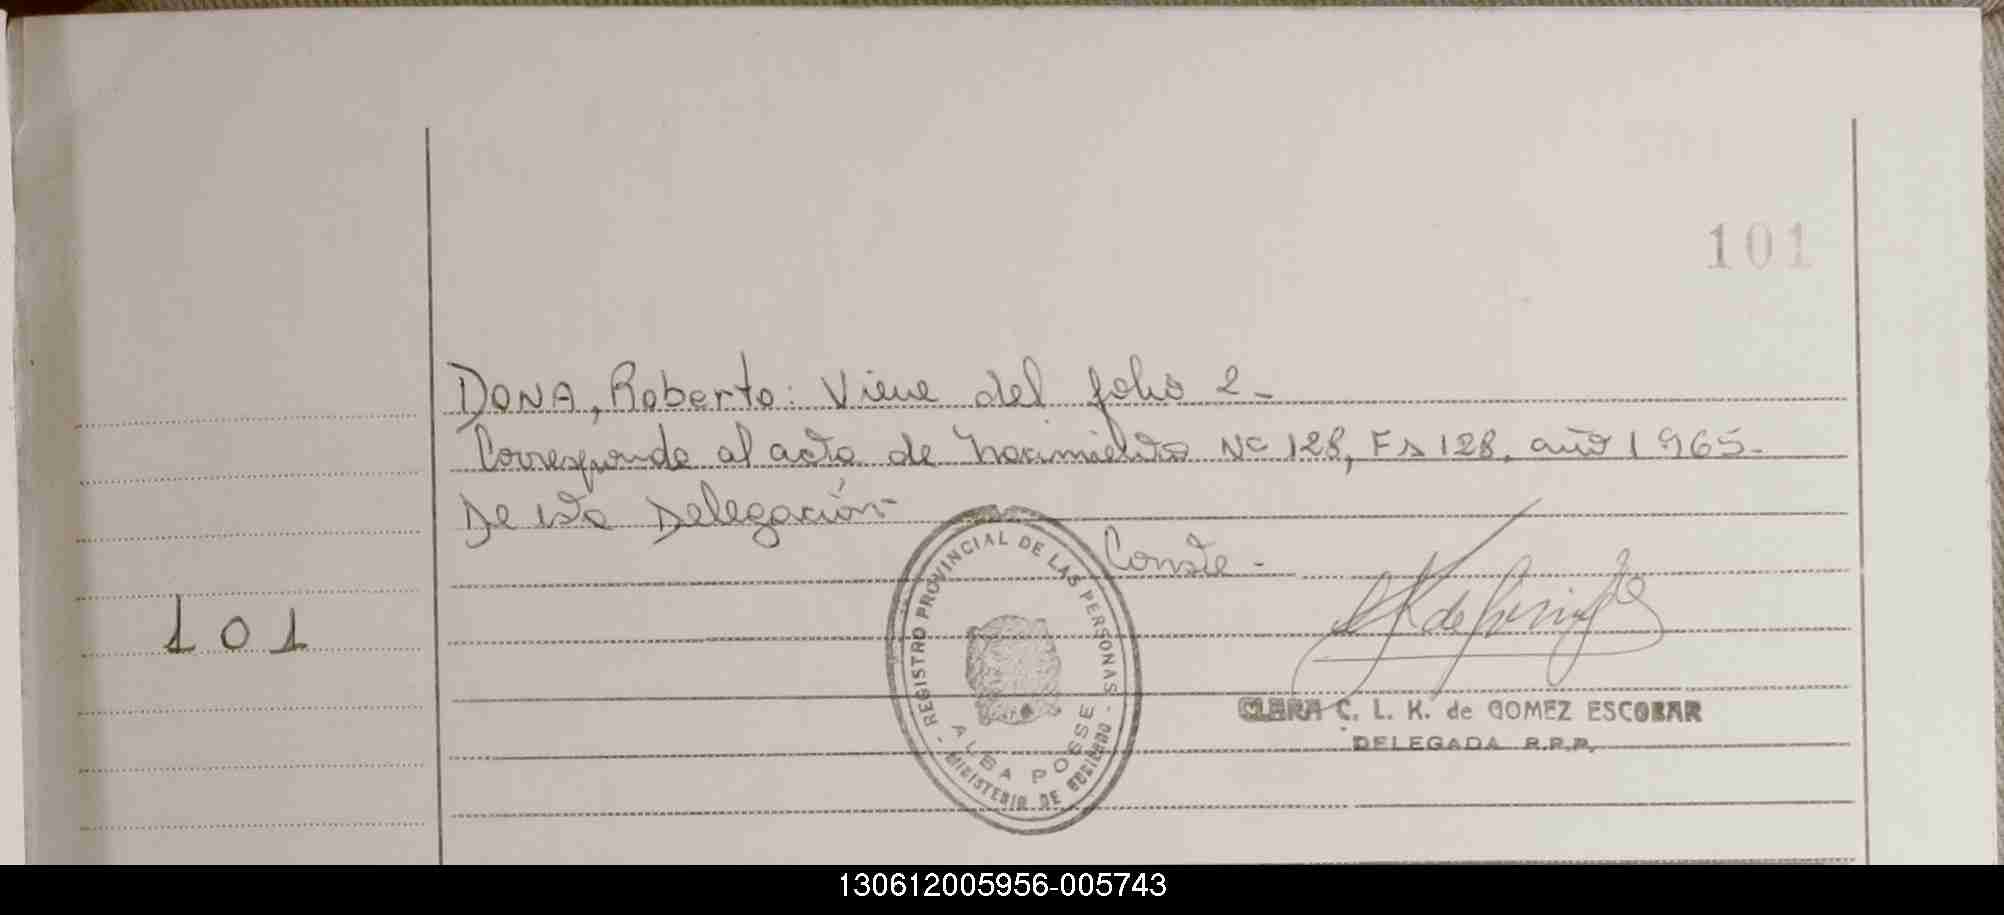 101
DONA, Roberto: Viene del folio 2-
Corresponde al acta de nacimiento Nº 128, Fs 128, año 1965-
De esta Delegación-
Conste-
101
- REGISTRO PROVINCIAL DE LAS PERSONAS -
MINISTERIO DE GOBIERNO
ALBA POSSE
CLARA C. L. K. de GOMEZ ESCOBAR
DELEGADA R.P.P.
130612005956-005743